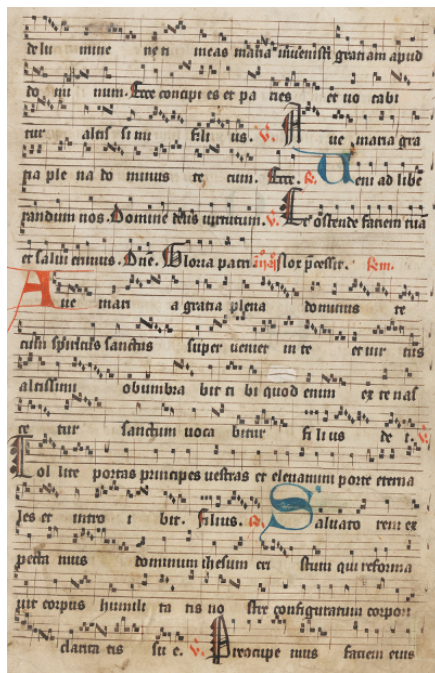 de lu mine ne ti meas maria invenisti gratiam apud
do mi num. Ecce concipi es et pa ries et vo cabi
tur altis si mi fili us. V. A ve maria gra
tia ple na do minus te cum. Ecce. R. Veni ad libe
randum nos. Domine deus virtutum. V. Et ostende faciem tuã
et salvi erimus. Dñe. Gloria patri
A ve mari a gratia plena dominus te
cum spiritus sanctus super veniet in te et vir tus
altissimi obumbra bit ti bi quod enim ex te nas
ce tur sanctum voca bitur fi li us de i. V.
Tol lite portas principes vestras et elevamini porte eterna
les et intro i bit. filius. R. Salvato rem ex
pecta mus dominum ihesum cri stum qui reforma
vit corpus humili ta tis no stre configuratum corpori
clarita tis su e. V. Preocupe mus faciem eius